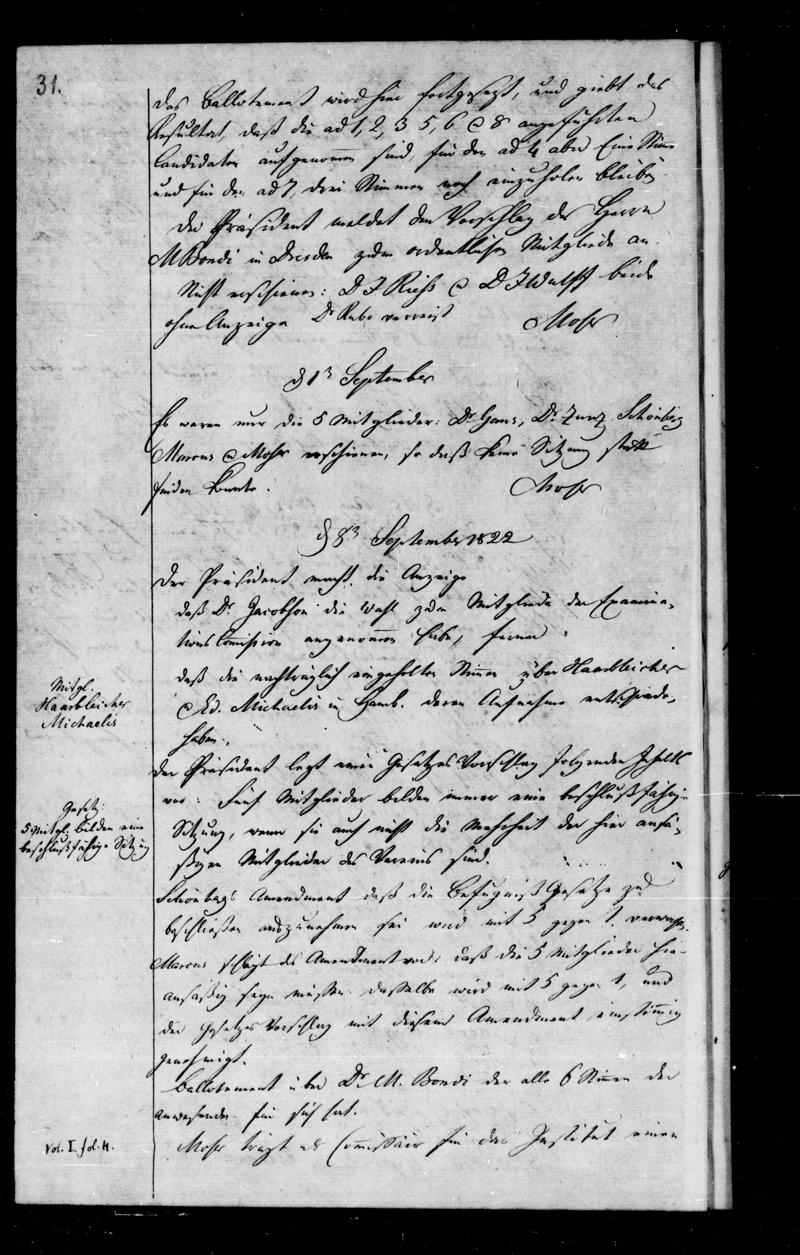 31.
Das Ballotement wird hier fortgesezt, und giebt das
Resultat, daß die ad 1, 2, 3 5, 6 & 8 angeführten
Candidaten aufgenommen sind, für den ad 4 aber Eine Stimme
und für den ad 7, drei Stimmen noch einzuholen bleiben.
Der Präsident meldet den Vorschlag des Herrn
M Bondi in Dresden zum ordentlichen Mitgliede an.
Nicht erschienen: D J Rieß & D J Wulff beide
ohne Anzeige Dr Rubo verreist Moser
d 1n September
Es waren nur die 5 Mitglieder: Dr Gans, Dr Zunz Schönberg
Marcus & Moser erschienen, so daß keine Sitzung statt
finden konnte. Moser
d 8n September 1822
Der Präsident macht die Anzeige
daß Dr. Jacobson die Wahl zum Mitgliede der Examina-
tions Comission angenommen habe, ferner
daß die nachträglich eingeholten Stimmen über Haarbleicher
& Ed. Michaelis in Hamb. deren Aufnahme entschieden
haben.
Mitgl.
Haarbleicher
Michaelis
Der Präsident legt einen Gesetzes Vorschlag folgenden Inhalts
vor: Fünf Mitglieder bilden immer eine beschlußfähige
Sitzung, wenn sie auch nicht die Mehrheit der hier ansä-
ßigen Mitglieder des Vereins sind.
Gesetz:
5 Mitgl. bilden eine
beschlußfähige Sitzung
Schönbergs Amendment daß die Befugniß Gesetze zu
beschließen auszunehmen sei wird mit 5 gegen 1. verworfen.
Marcus schlägt das Amendment vor: daß die 5 Mitglieder hier
ansäßig seyn müssen. dasselbe wird mit 5 gegen 1, und
der Gesetzes Vorschlag mit diesem Amendment einstimmig
genehmigt.
Ballotement über Dr. M. Bondi der alle 6 Stimmen der
Anwesenden für sich hat.
Moser trägt als Comissair für das Institut einen
Vol. I. fol. 4.